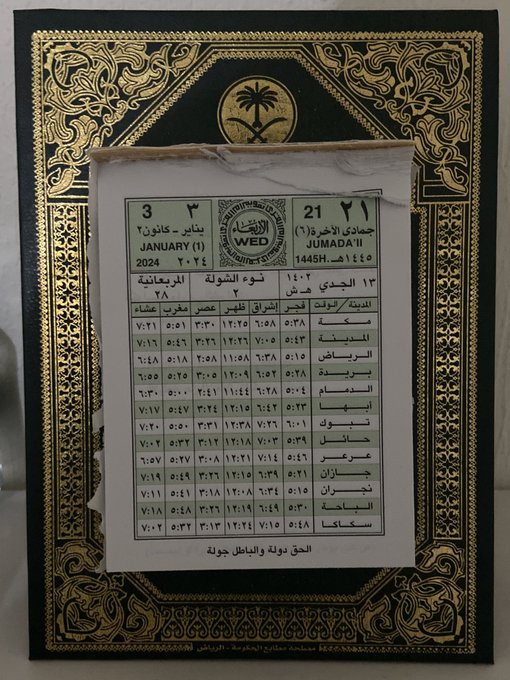 ٢١ 21
جمادى الآخرة (٦)
JUMADA'II
١٤٤٥هـ 1445H.
الأربعاء
WED
٣ 3
يناير - كانون٢
JANUARY (1)
٢٠٢٤ 2024
١٣ الجدي ١٤٠٢ هـ ش
نوء الشولة ٢
المربعانية ٢٨
المدينة / الوقت فجر إشراق ظهر عصر مغرب عشاء
مكة ٥:٣٨ ٦:٥٨ ١٢:٢٥ ٣:٣٠ ٥:٥١ ٧:٢١
المدينة ٥:٤٣ ٧:٠٥ ١٢:٢٦ ٣:٢٦ ٥:٤٦ ٧:١٦
الرياض ٥:١٥ ٦:٣٨ ١١:٥٨ ٢:٥٨ ٥:١٨ ٦:٤٨
بريدة ٥:٢٨ ٦:٥٢ ١٢:٠٩ ٣:٠٥ ٥:٢٥ ٦:٥٥
الدمام ٥:٠٤ ٦:٢٨ ١١:٤٤ ٢:٤١ ٥:٠٠ ٦:٣٠
أبها ٥:٢٣ ٦:٤٢ ١٢:١٥ ٣:٢٤ ٥:٤٧ ٧:١٧
تبوك ٦:٠١ ٧:٢٦ ١٢:٣٨ ٣:٣١ ٥:٥٠ ٧:٢٠
حائل ٥:٣٩ ٧:٠٣ ١٢:١٨ ٣:١٢ ٥:٣٢ ٧:٠٢
عرعر ٥:٤٦ ٧:١٤ ١٢:٢١ ٣:٠٨ ٥:٢٧ ٦:٥٧
جازان ٥:٢١ ٦:٣٩ ١٢:١٥ ٣:٢٦ ٥:٤٩ ٧:١٩
نجران ٥:١٥ ٦:٣٤ ١٢:٠٨ ٣:١٨ ٥:٤١ ٧:١١
الباحة ٥:٣٠ ٦:٤٩ ١٢:١٩ ٣:٢٦ ٥:٤٨ ٧:١٨
سكاكا ٥:٤٨ ٧:١٥ ١٢:٢٤ ٣:١٣ ٥:٣٢ ٧:٠٢
الحق دولة والباطل جولة
مصلحة مطابع الحكومة - الرياض